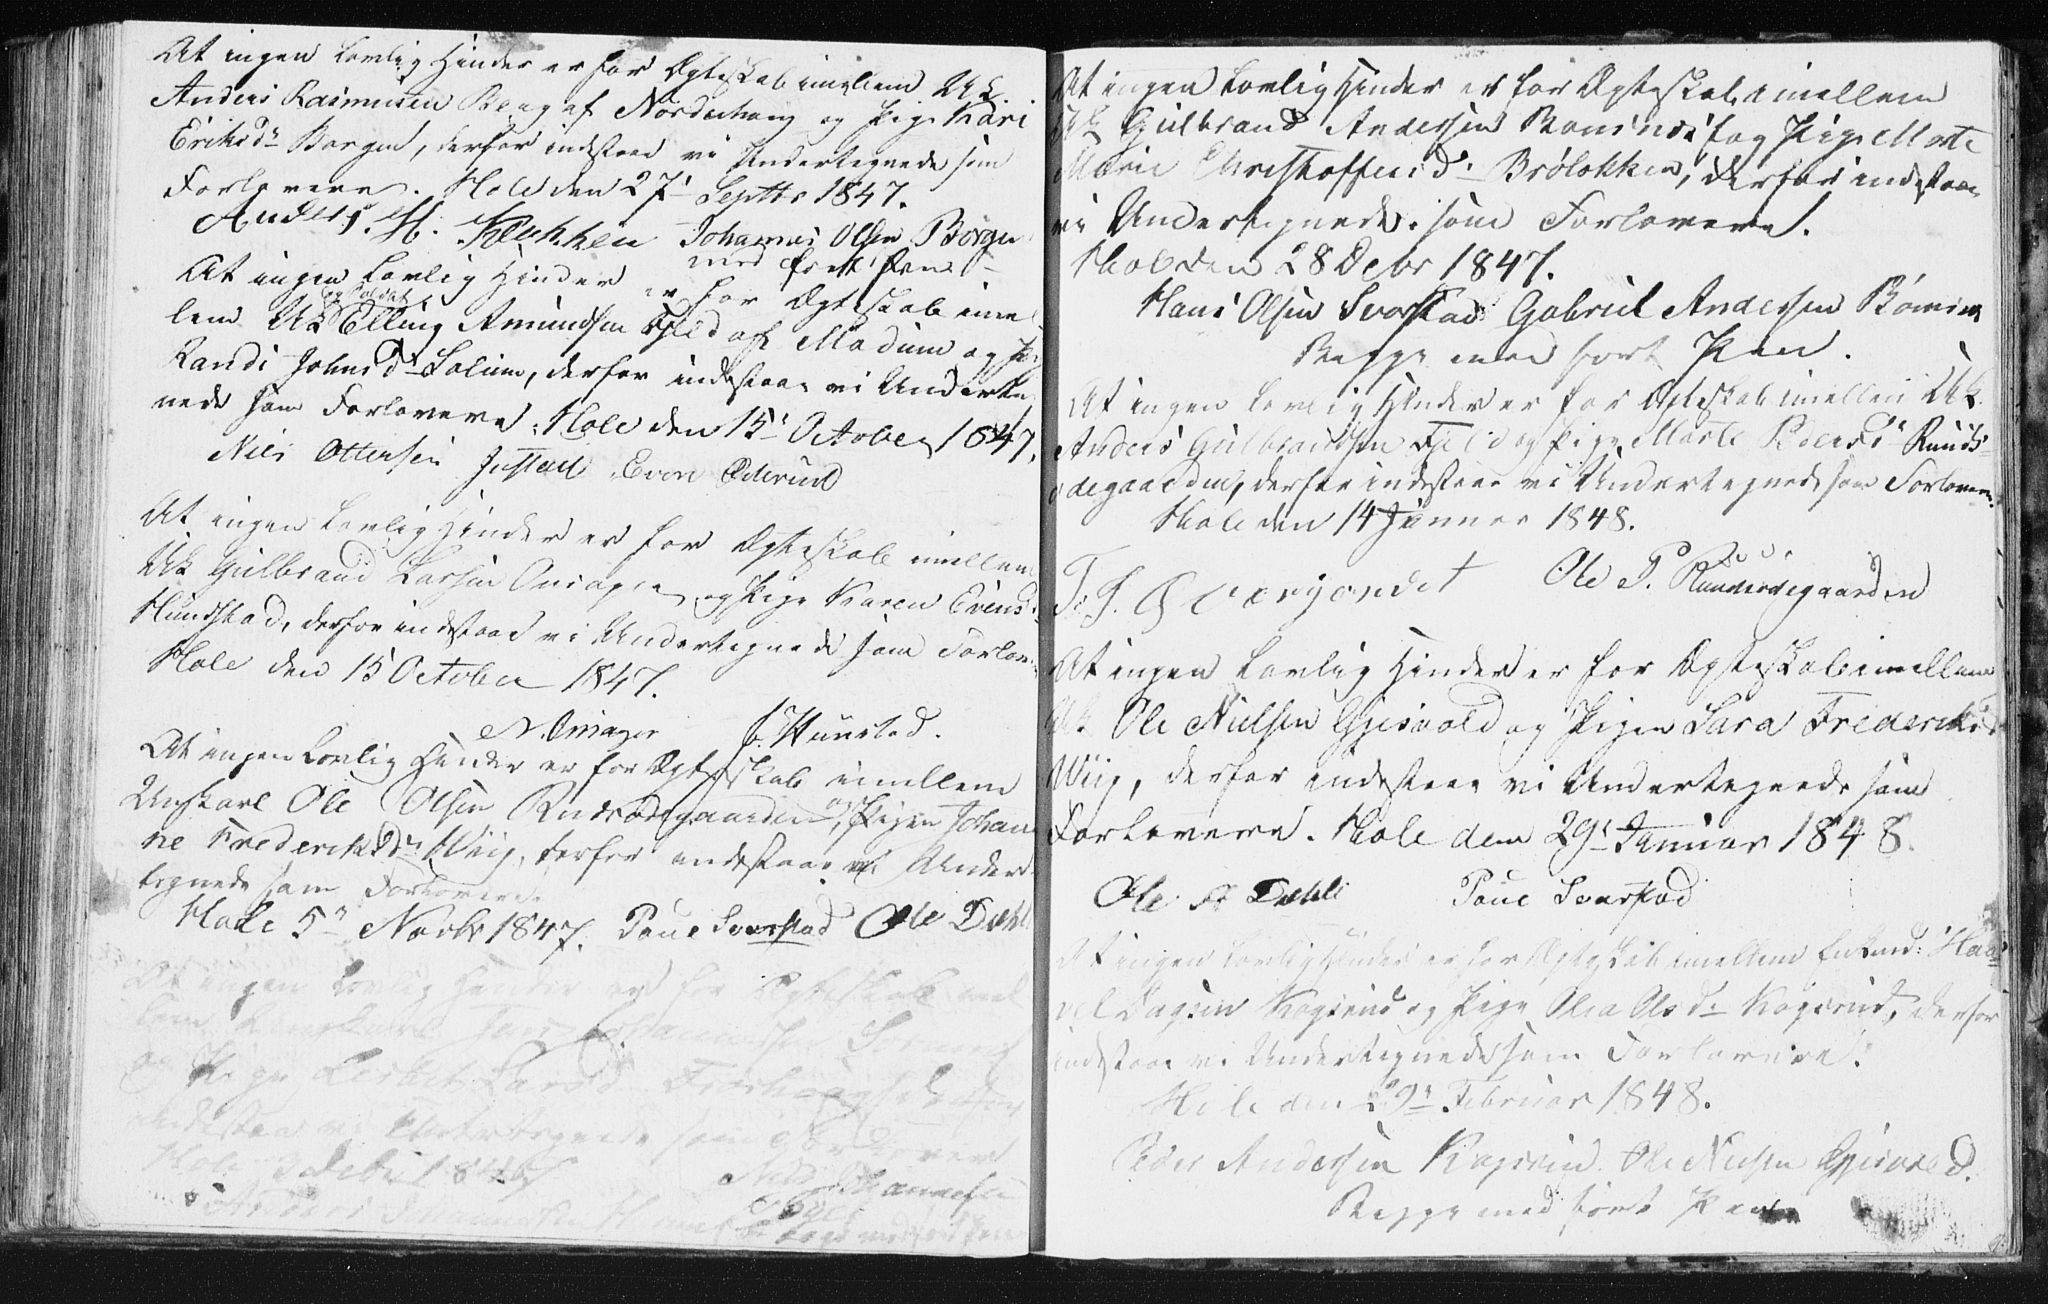 At ingen lovlig Hinder er for Ægteskab imellem UK
Anders Rasmusen Berg af Norderhoug og Pige Kari
Eriksd: Borgen, derfor indstaae vi Undertegnede som
Forlovere. Hole den 27 Septbr 1847.
Anders H. Klekken Johannes Olsen Borgen
med ført Pen
At ingen lovlig Hinder er for Ægteskab imel
og Soldat
lem UK Elling Amundsen Fjeld af Modum og Pig
Randi Johnsd: Solum, derfor indestaae vi Underteg
nede som Forlovere. Hole den 15 October 1847.
Niels Ottersen Justad Even Øderud
At ingen lovlig Hinder er for Ægteskab imellem
UK Gulbrand Larsen Onsager og Pige Karen Evensd:
Hundstad, derfor indestaae vi Undertegnede som Forlov
Hole den 15 October 1847.
N. Onsager Hunstad.
At ingen lovlig Hinder er for Ægteskab imellem
Ungkarl Ole Olsen Rudsødegaarden, og Pigen Johan
ne Frederiksd: Wiig, derfor indestaae vi Under
tegnede som Forlovere.
Hole 5 Novbr 1847. Poul Svarstad Ole Dæhli
At ingen lovlig Hinder er for Ægteskab imel
lem Ungkarl Johannesen
og Pige Lisbet Larsd: derfor
indestaae vi Undertegnede som Forlovere
Hole 3 Debr 1847
Anders Johannesen med ført Pen
At ingen lovlig Hinder er for Ægteskab imellem
UK Gulbrand Andersen og Pige Marte
Marie Christoffersd: Brøløkken, derfor indestaae
vi Undertegnede som Forlovere.
Hole den 28 Debr 1847.
Hans Olsen Svarstad Gabriel Andersen
Begge med ført Pen.
At ingen lovlig Hinder er for Ægteskab imellem UK.
Anders Gulbrandsen Fjeld og Pige Marte Pedersd: Ruuds
ødegaarden, derfor indestaae vi Undertegnede som Forlovere.
Hole den 14 Januar 1848.
Ole P. Ruudsødegaarden
At ingen lovlig Hinder er for Ægteskab imellem
UK. Ole Nielsen Gjesvold og Pigen Sara Frederiksd
Wiig, derfor indestaae vi Undertegnede som
Forlovere. Hole den 29 Januar 1848.
Ole A Dæhli Poul Svarstad
At ingen lovlig Hinder er for Ægteskab imellem Enkemd:
og Pige Olea Olsd: Kogsrud, derfor
indestaae vi Undertegnede som Forlovere.
Hole den 29 Februar 1848.
Peder Andersen Kogsrud. Ole Nielsen Gjesvold.
Begge med ført Pen